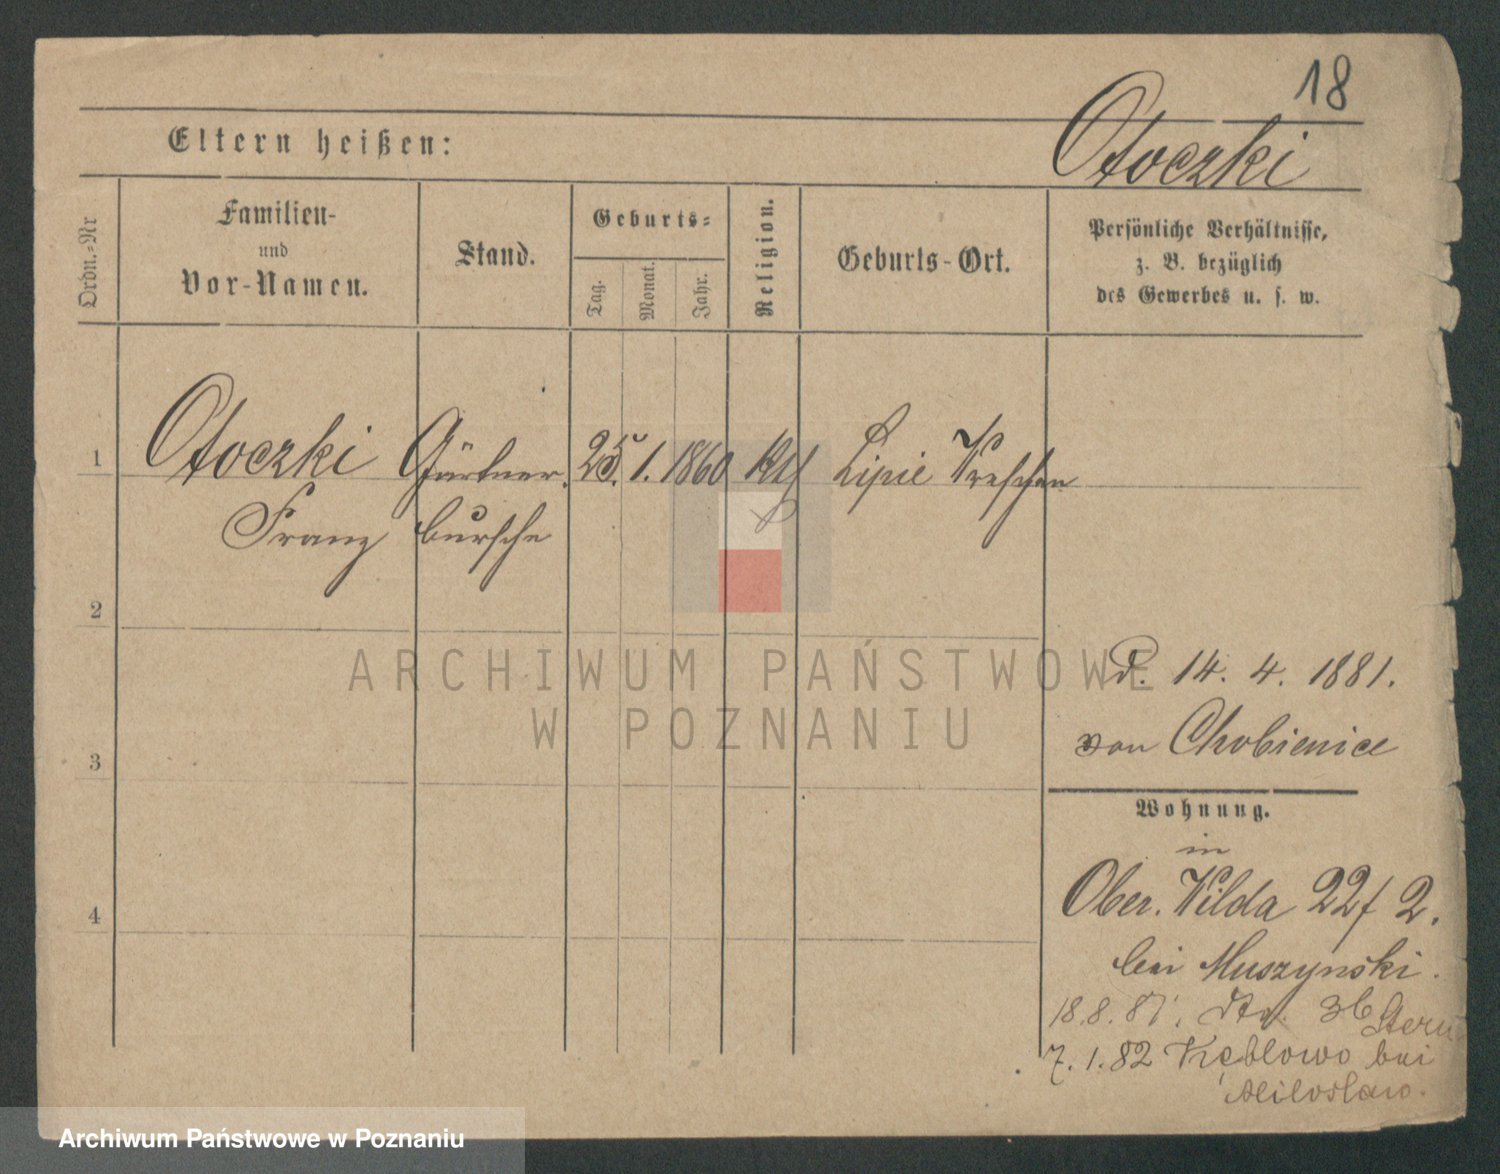 18
Otoczki
Eltern heißen:
Ordn.=Nr
Familien-
und
Vor-Namen.
Stand.
Geburts=
Tag.
Monat.
Jahr.
Religion.
Geburts-Ort.
Persönliche Verhältnisse,
z. B. bezüglich
des Gewerbes u. s. w.
1 Otoczki Gärtner. 25. 1. 1860 Kth Lipie Wreschen
Franz bursche
2
d. 14. 4. 1881.
von Chobienice
3
Wohnung.
in
Ober. Wilda 22/2.
4
bei Muszynski.
18.8.81. 36 Stern
7.1.82 Kęblowo bei
Miloslaw.
ARCHIWUM PAŃSTWOWE
W POZNANIU
Archiwum Państwowe w Poznaniu